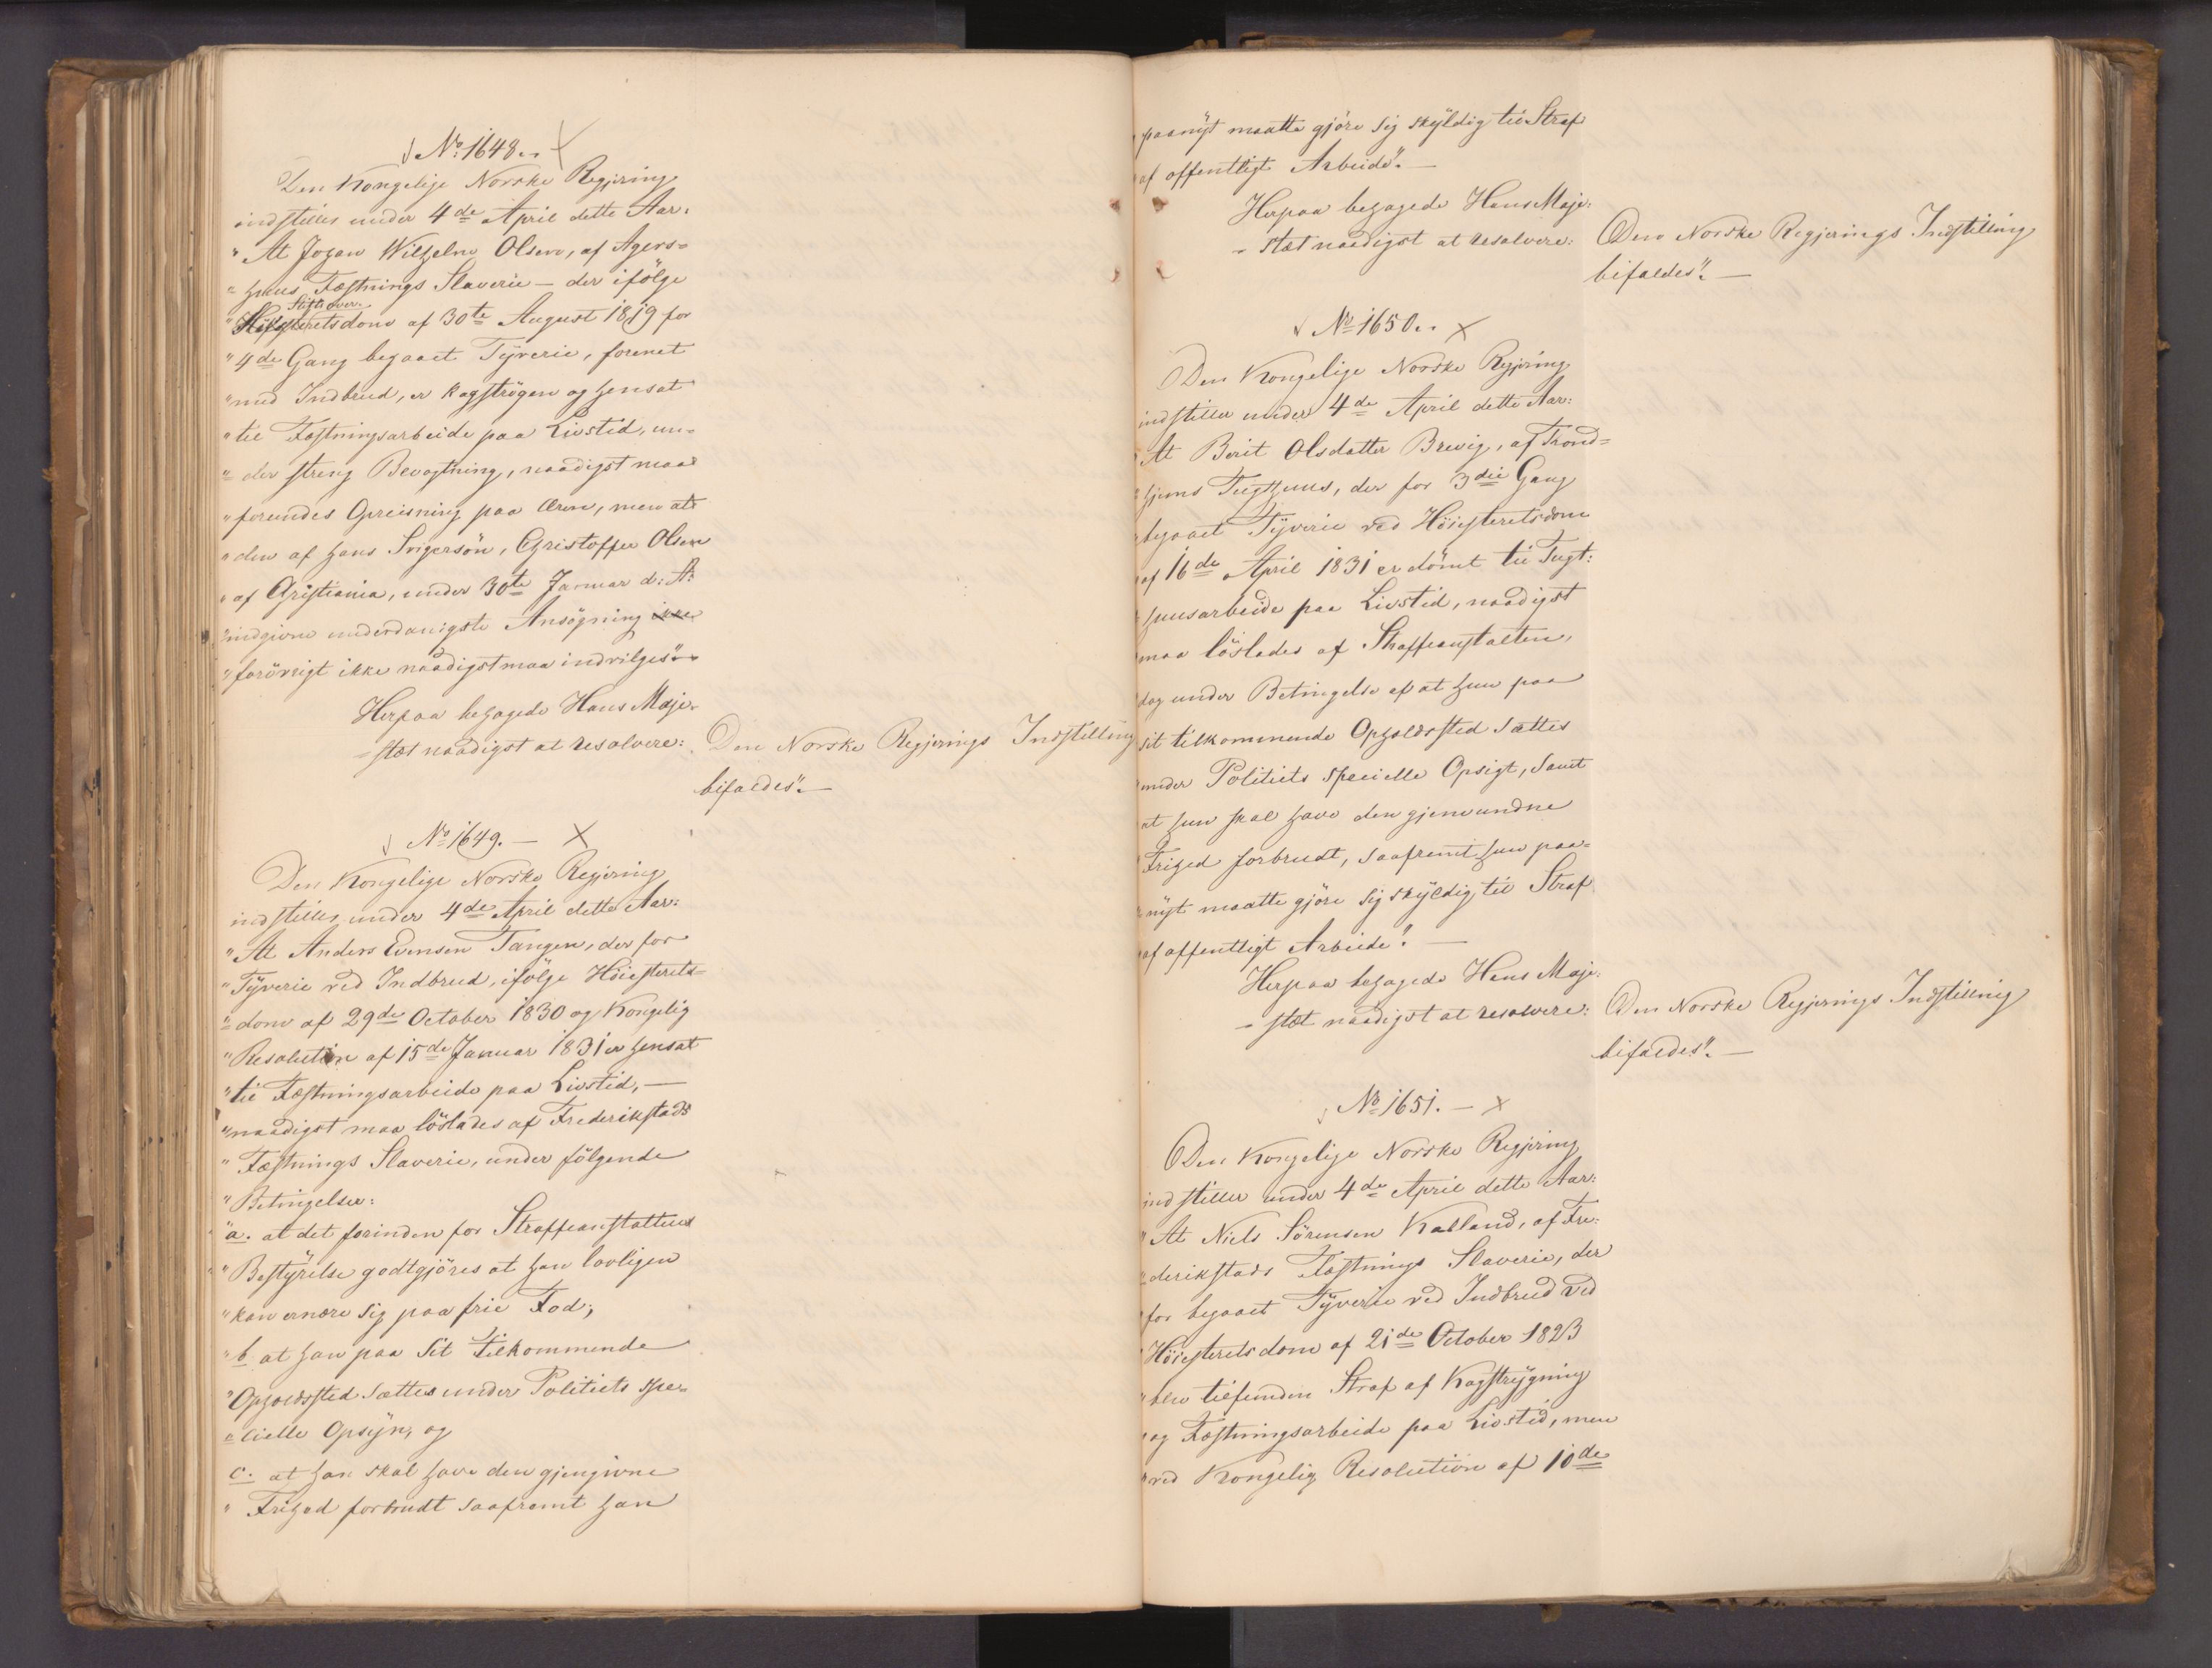 No: 1648.
Den Kongelige Norske Regjering
indstiller under 4de April dette Aar:
"At Johan Wilhelm Olsen, af Agers=
"huus Fæstnings Slaverie — der ifölge
Stiftsover=
"Höiesteretsdom af 30te August 1819 for
"4de Gang begaaet Tÿverie, forenet
"med Indbrud, er kagströgen og hensat
"til Fæstningsarbeide paa Livstid, un=
"der streng Bevogtning, naadigst maa
"forundes Opreisning paa Æren, men at
"den af hans Svigersön, Christoffer Olsen
"af Christiania, under 30te Januar d: A:
"indgivne underdanigste Ansögning ikke
"forövrigt ikke naadigst maa indvilges".
Herpaa behagede Hans Maje=
=stæt naadigst at resolvere: Den Norske Regjerings Indstilling
bifaldes". —
No 1649. —
Den Kongelige Norske Regjering
indstiller under 4de April dette Aar:
"At Anders Evensen Tangen, der for
"Tÿverie ved Indbrud, ifölge Höiesterets=
"dom af 29de October 1830 og Kongelig
"Resolution af 15de Januar 1831 er hensat
"til Fæstningsarbeide paa Livstid, —
"naadigst maa löslades af Frederikstads
"Fæstnings Slaverie, under fölgende
"Betingelser:
"a. at det forinden for Straffeanstaltens
"Bestÿrelse godtgjöres at han lovligen
"kan ernære sig paa frie Fod;
"b at han paa sit tilkommende
"Opholdssted sættes under Politiets spe=
"cielle Opsÿn, og
c. at han skal have den gjengivne
"Frihed forbrudt saafremt han
paanÿt maatte gjöre sig skÿldig til Straf
af offentligt Arbeide". —
Herpaa behagede Hans Maje:
=stæt naadigst at resolvere: Den Norske Regjerings Indstilling
bifaldes". —
No 1650.
Den Kongelige Norske Regjering
indstiller under 4de April dette Aar:
"At Berit Olsdatter Brevig, af Trond=
"hjems Tugthuus, der for 3die Gang
"begaaet Tÿverie ved Höiesteretsdom
"af 16de April 1831 er dömt til Tugt:
"huusarbeide paa Livstid, naadigst
"maa löslades af Straffeanstalten,
"dog under Betingelse af at hun paa
sit tilkommende Opholdssted sættes
"under Politiets specielle Opsigt, samt
"at hun skal have den gjenvundne
"Frihed forbrudt, saafremt hun paa=
"nÿt maatte gjöre sig skÿldig til Straf
"af offentligt Arbeide". —
Herpaa behagede Hans Maje:
=stæt naadigst at resolvere: Den Norske Regjerings Indstilling
bifaldes". —
No 1651. —
Den Kongelige Norske Regjering
indstiller under 4de April dette Aar:
"At Niels Sörensen Kalland, af Fre:
"derikstads Fæstnings Slaverie, der
"for begaaet Tÿverie ved Indbrud ved
"Höiesteretsdom af 21de October 1823
"blev tilfunden Straf af Kagstrÿgning
"og Fæstningsarbeide paa Livstid, men
"ved Kongelig Resolution af 10de